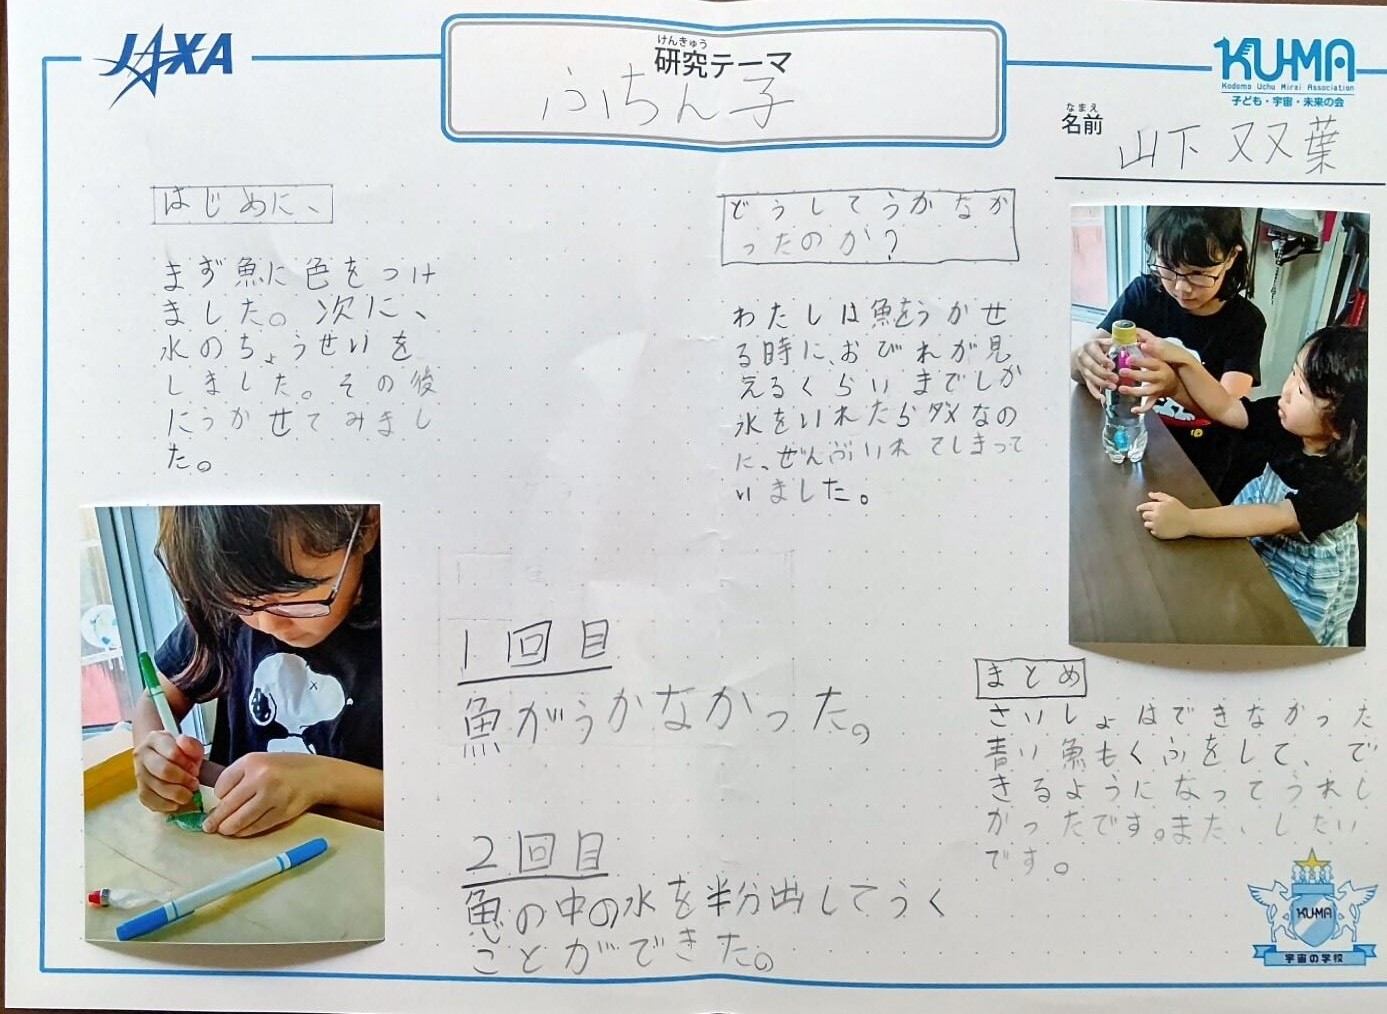 JAXA
けんきゅう
研究テーマ
ふちん子
KUMA
Kodomo Uchu Mirai Association
子ども・宇宙・未来の会
なまえ
名前
山下 双葉
はじめに、
まず魚に色をつけ
ました。次に、
水のちょうせいを
しました。その後
にうかせてみまし
た。
1回目
魚がうかなかった。
2回目
魚の中の水を半分出してうく
ことができた。
どうしてうかなか
ったのか?
わたしは魚をうかせ
る時に、おびれが見
えるくらいまでしか
水をいれたらダメなの
に、ぜんぶいれてしまって
いました。
まとめ
さいしょはできなかった
青い魚もくふをして、で
きるようになってうれし
かったです。また、したい
です。
KUMA
宇宙の学校